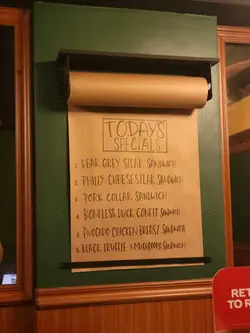 TODAY'S
SPECIALS
1. DEAR GREY STEAK SANDWICH
2. PHILLY CHEESESTEAK SANDWICH
3. PORK COLLAR SANDWICH
4. BONELESS DUCK CONFIT SANDWICH
5. AVOCADO CHICKEN BREAST SANDWICH
6. BLACK TRUFFLE & MUSHROOMS SANDWICH
RET
TO R